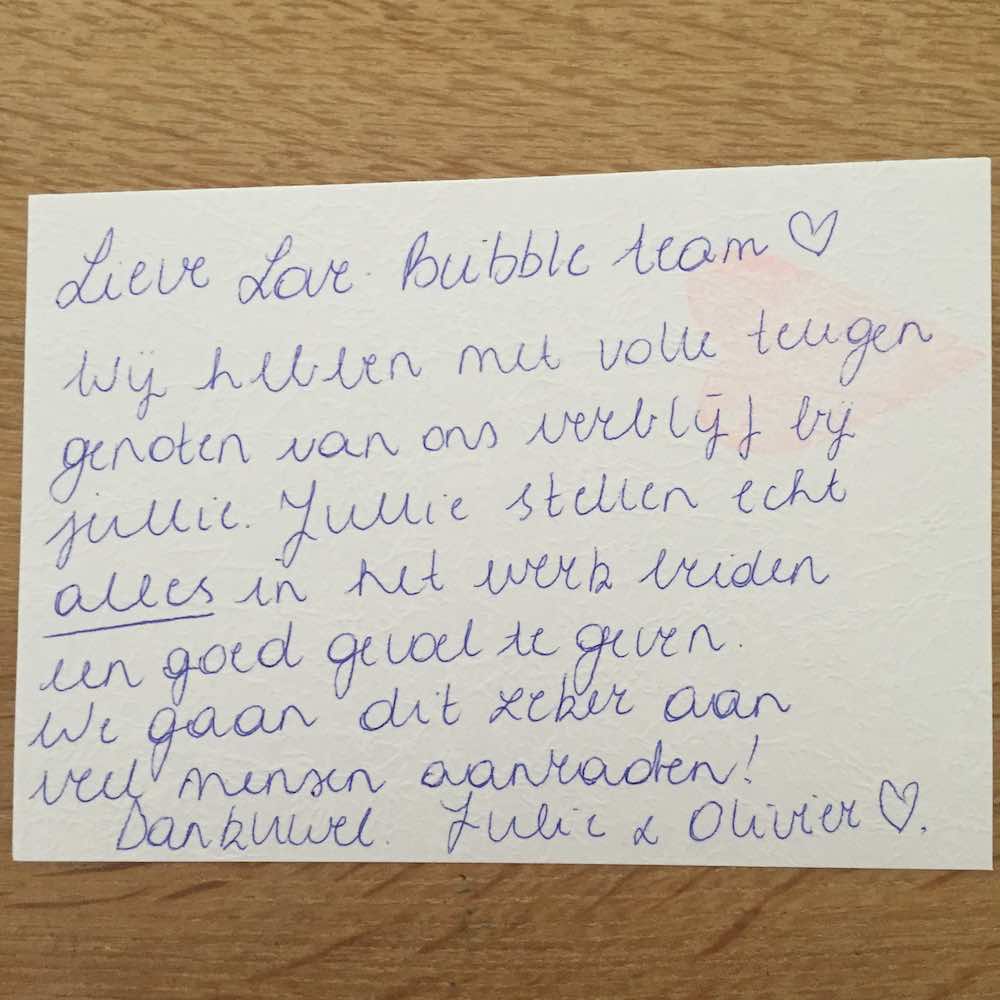 Lieve Love Bubble team ♡
Wij hebben met volle teugen
genoten van ons verblijf bij
jullie. Jullie stellen echt
alles in het werk
een goed gevoel te geven.
We gaan dit zeker aan
veel mensen aanraden!
Dankuwel. Julie & Olivier ♡.